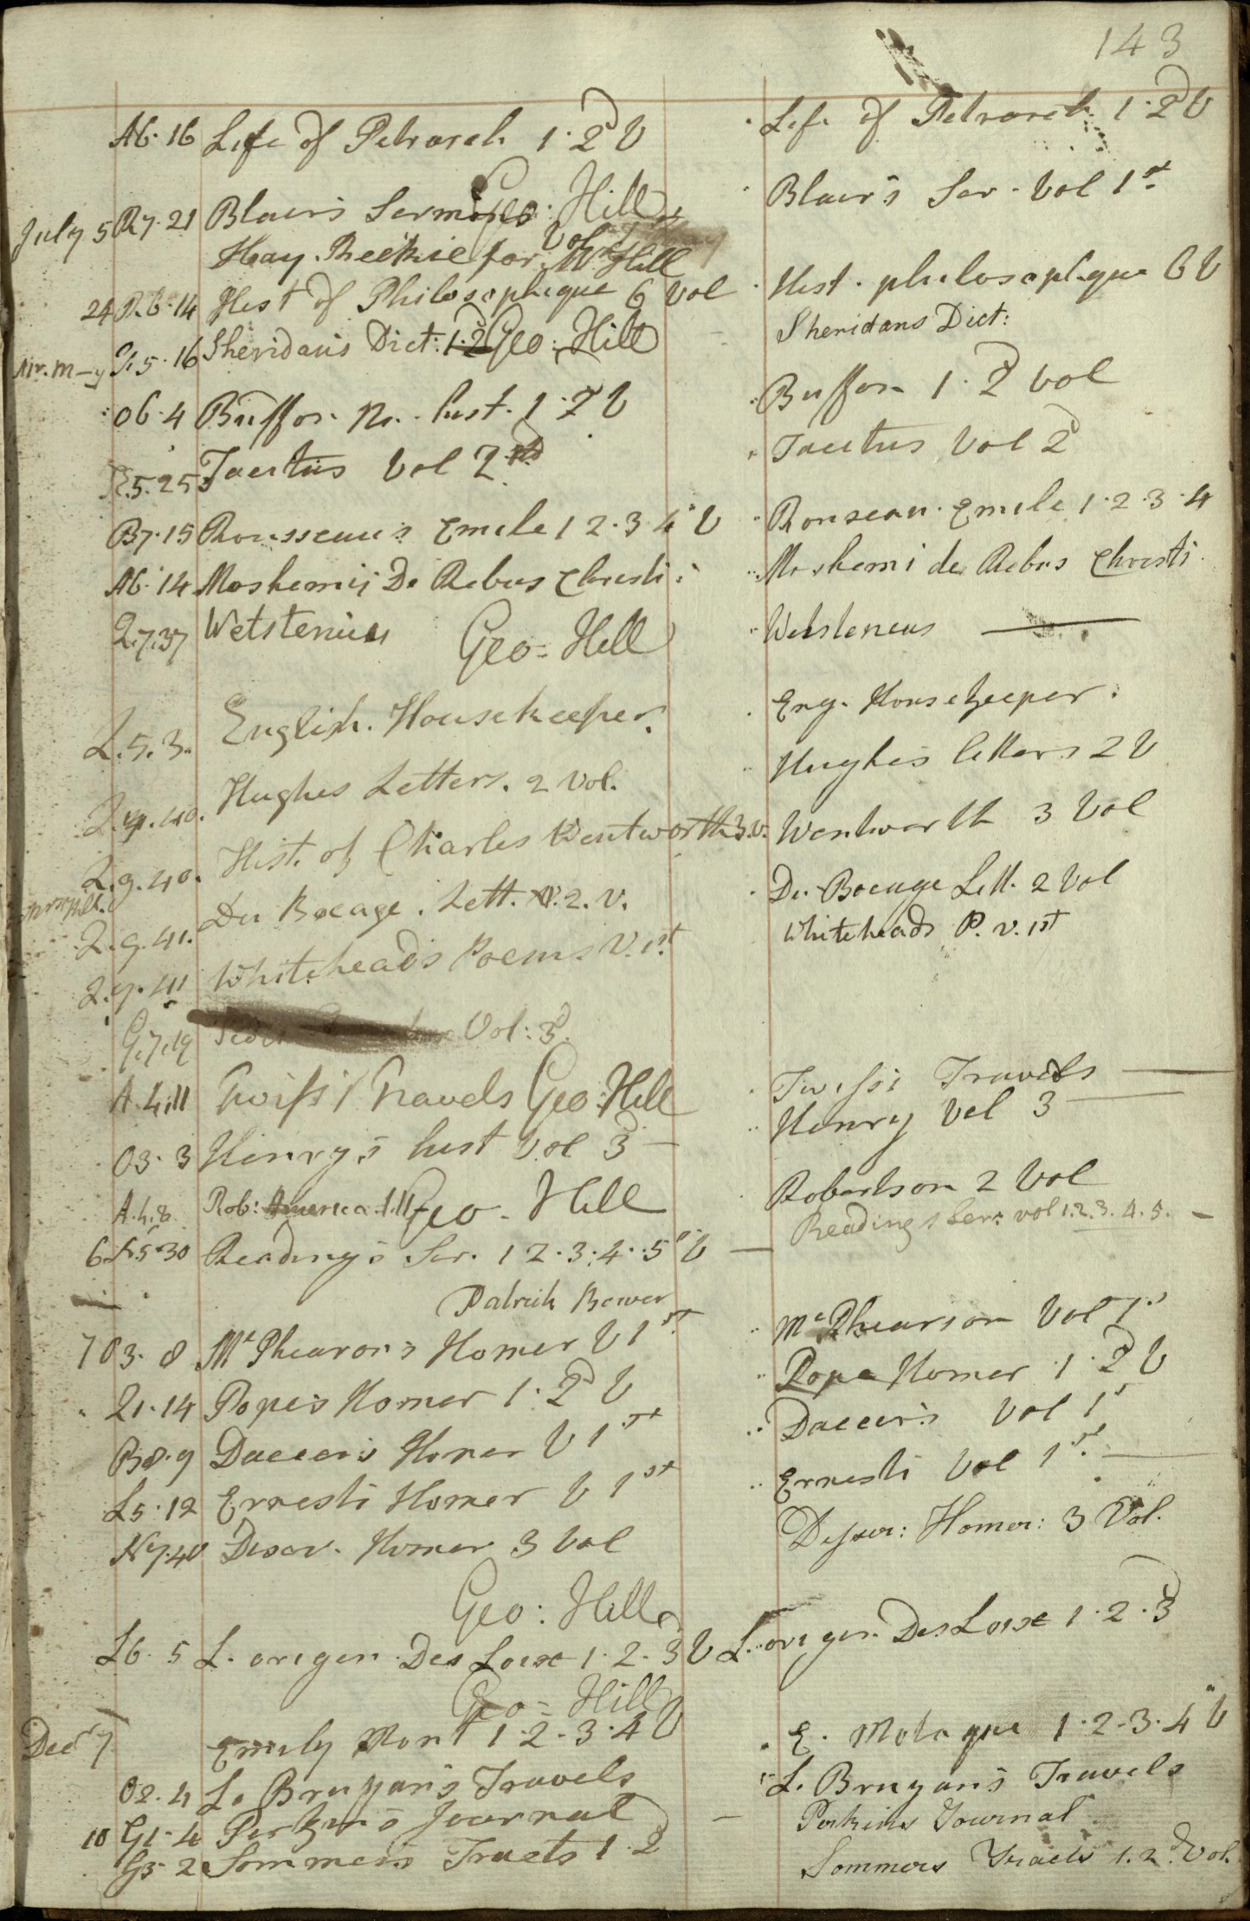 143
A6. 16 Life of Petrarch 1. 2d V Life of Petrarch 1. 2d V
Geo: Hill
July 5 R7. 21 Blairs Sermons Vol 1st Blair's Ser. Vol 1st
Hay. Reekie for Mr Hill
24 R.6. 14 Hist of Philosophique 6 Vol Hist. philosophique 6 V
5. 16 Sheridans Dict: 1. 2 Geo: Hill Sheridans Dict:
O6. 4 Buffon N. hist. 1. 2d V Buffon 1. 2d Vol
5. 25 Tacitus Vol 2d Tacitus Vol 2d
B7. 15 Rousseau's Emile 1 2. 3 4 V Rouseau. Emile 1. 2. 3. 4
A6. 14 Moshemij De Rebus Christi Moshemi de Rebus Christi
Q.7.37 Wetstenius Geo: Hill Wetsteneus
L.5.3. English. Housekeeper. Eng. Housekeeper.
Hughes Letters. 2 Vol. Hughes letters 2 V
2.9.40. Hist. of Charles Wentworth 3.v. Wentworth 3 Vol
2.9.41. Du Bocage. Lett. 2. v. Du Bocage Lett. 2 Vol
2.9.41 Whitehead's Poems V. 1st Whiteheads P. v. 1st
G.7.19 Vol: 3d.
A.4.11 Twiss's Travels Geo: Hill Twiss's Travels
O3. 3 Henry's hist Vol 3d Henry Vol 3
A.4.8 Rob: America Geo. Hill Robertson 2 Vol
6 5. 30 Reading's Ser. 1 2. 3. 4. 5 V Readings Ser: vol 1. 2. 3. 4. 5.
Patrick Bower
7 O3. 8 McPhearson's Homer V 1st McPhearson Vol 1st
21. 14 Pope's Homer 1. 2d V Pope Homer 1. 2d V
B8. 9 Dacier's Homer V 1st Dacier's Vol 1st
L5. 12 Ernesti Homer V 1st Ernesti Vol 1st
N7. 40 Homer 3 Vol Homer: 3 Vol.
Geo: Hill
L6. 5 L. origen Des Loix 1. 2. 3d V L. origen Des Loix 1. 2. 3d
Geo: Hill
Decr 7 Emily Mont 1. 2. 3. 4 V E. Motague 1. 2. 3. 4 V
O2. 4 Le Bruyan's Travels Le Bruyan's Travels
10 G1. 4 Perkin's Journal Perkins Journal
G5. 2 Sommers Tracts 1. 2d Sommers Tracts 1. 2d. Vol.